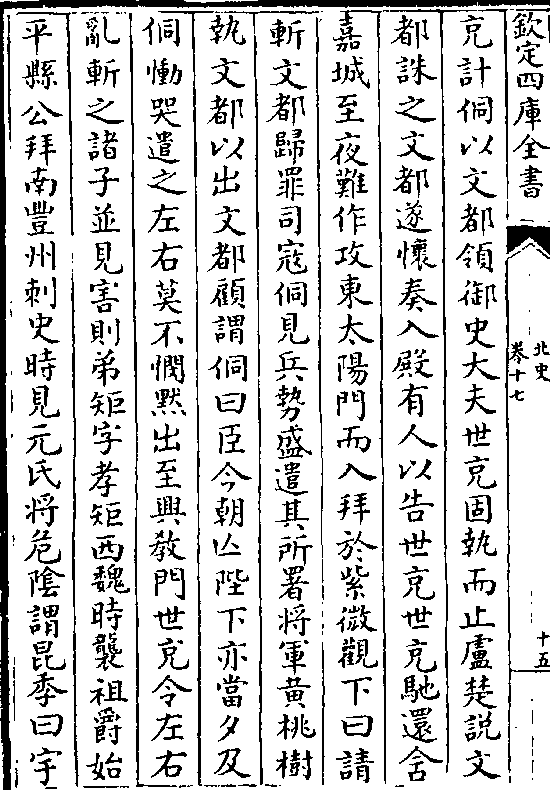 欽定四庫全書
北史
卷十七
十五
充計侗以文都領御史大夫世充固執而止盧楚説文
都誅之文都遂懷奏入殿有人以告世充世充馳還含
嘉城至夜難作攻東太陽門而入拜於紫微觀下曰請
斬文都歸罪司寇侗見兵勢盛遣其所署將軍黄桃樹
執文都以出文都顧謂侗曰臣今朝亾陛下亦當夕及
侗慟哭遣之左右莫不憫黙出至興敎門世充令左右
亂斬之諸子並見害則弟矩字孝矩西魏時襲祖爵始
平縣公拜南豐州刺史時見元氏将危隂謂昆季曰宇